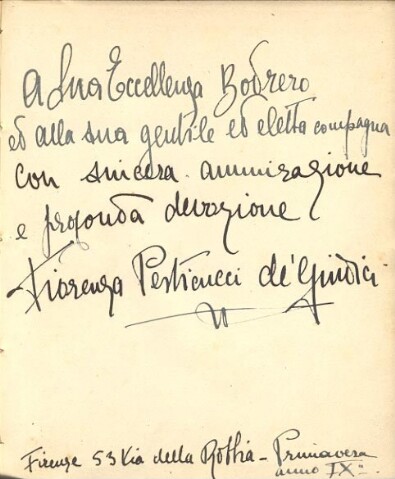 A Sua Eccellenza Bodrero
ed alla sua gentile ed eletta compagna
con sincera ammirazione
e profonda devozione
Fiorenza Perticucci de' Giudici
Firenze 53 Via della Robbia - Primavera
anno IXº